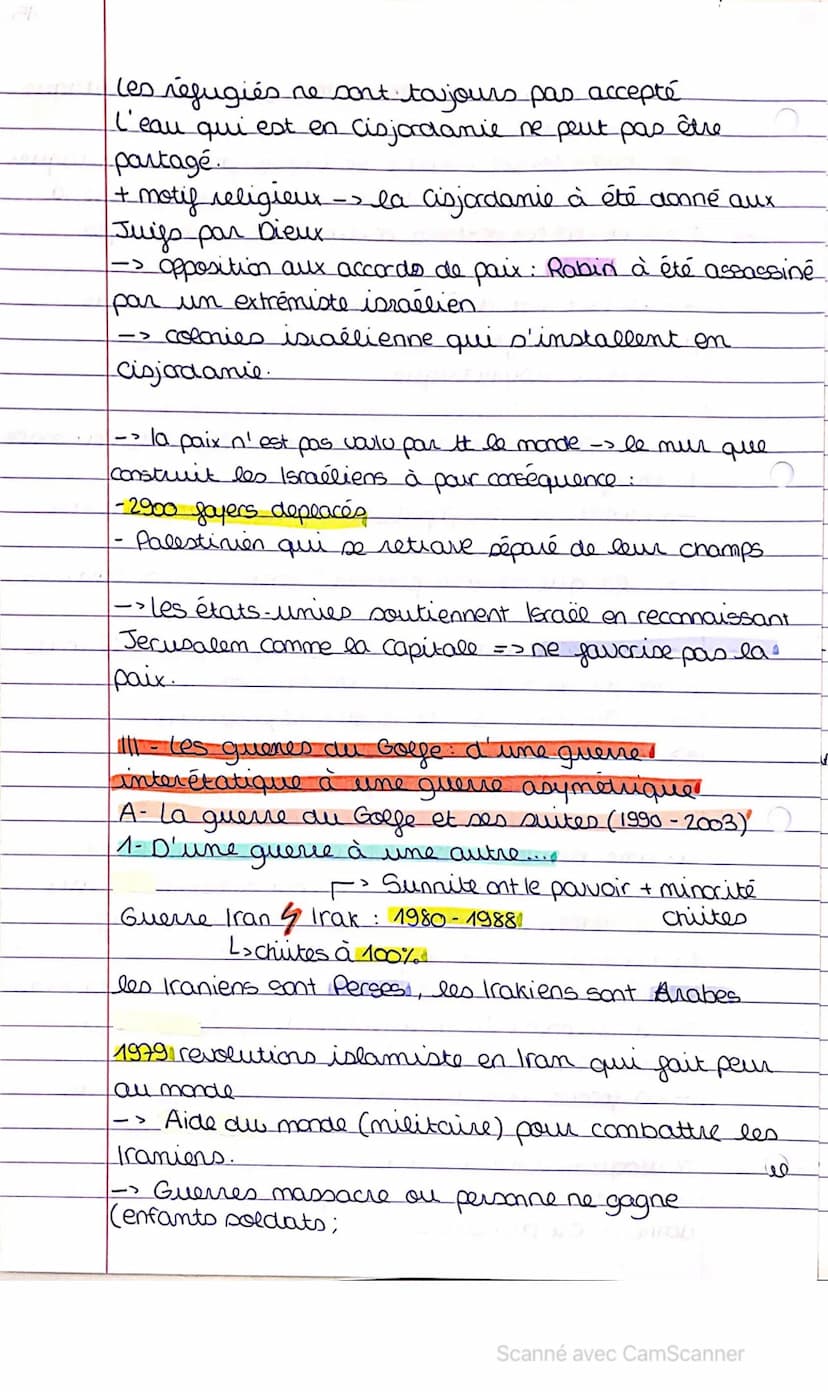 Les réfugiés ne sont toujours pas accepté
L'eau qui est en Cisjordanie ne peut pas être
partagé.
+ motif religieux --> la Cisjordanie à été donné aux
Juifs par Dieux
--> opposition aux accords de paix : Rabin à été assassiné
par un extrémiste israélien
--> colonies israélienne qui s'installent en
Cisjordanie.
--> la paix n'est pas voulu par tt le monde --> le mur que
construit les Israéliens à pour conséquence :
- 2900 foyers déplacés
- Palestinien qui se retrouve séparé de leur champs
--> les états-unies soutiennent Israël en reconnaissant
Jerusalem comme la capitale => ne favorise pas la
paix.
III - Les guerres du Golfe : d'une guerre
interétatique à une guerre asymétrique
A- La guerre du Golfe et ses suites (1990 - 2003)
1- D'une guerre à une autre...
↱> Sunnite ont le pouvoir + minorité
Guerre Iran ⚡ Irak : 1980 - 1988 chiites
↳ chiites à 100%
les Iraniens sont Perses, les Irakiens sont Arabes
1979 revolutions islamiste en Iran qui fait peur
au monde
--> Aide du monde (militaire) pour combattre les
Iraniens.
--> Guerres massacre ou personne ne gagne
(enfants soldats ;
Scanné avec CamScanner